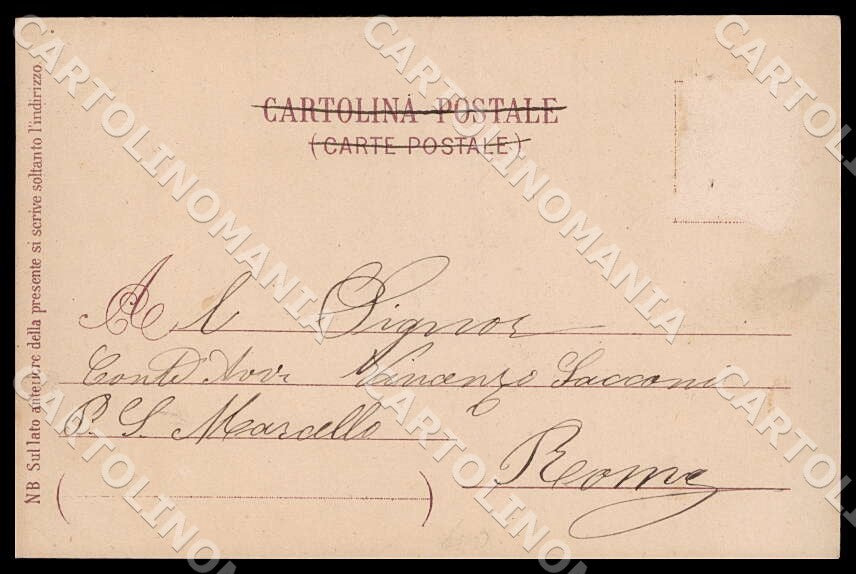 CARTOLINA POSTALE
(CARTE POSTALE)
Al Signor
Conte Avv. Vincenzo Sacconi
P. S. Marcello
Roma
NB Sul lato anteriore della presente si scrive soltanto l'indirizzo
CARTOLINOMANIA
CARTOLINOMANIA
CARTOLINOMANIA
CARTOLINOMANIA
CARTOLINOMANIA
CARTOLINOMANIA